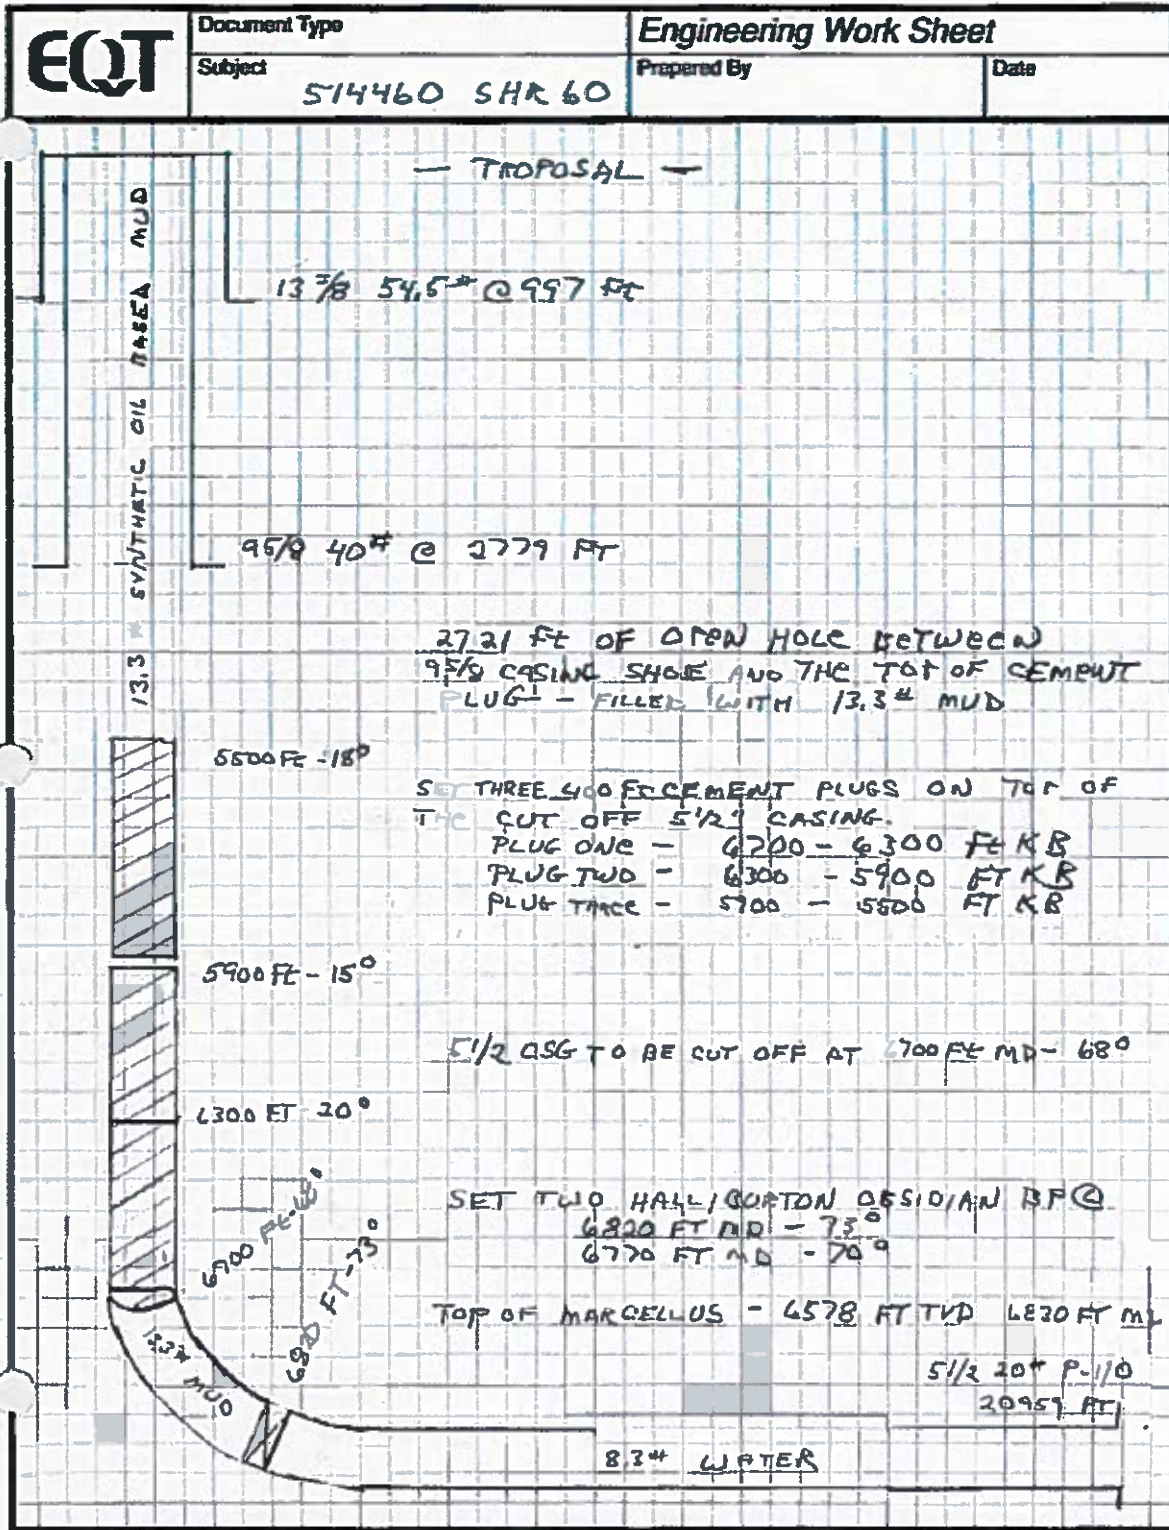 EQT
Document Type
Engineering Work Sheet
Subject
514460 SHR 60
Prepared By
Date
— PROPOSAL —
13.3 # SYNTHETIC OIL BASED MUD
13 3/8 54.5# @ 997 Ft
9 5/8 40# @ 2779 FT
2721 Ft OF OPEN HOLE BETWEEN
9 5/8 CASING SHOE AND THE TOP OF CEMENT
PLUG - FILLED WITH 13.3# MUD
5500 Ft - 18°
SET THREE 400 FT CEMENT PLUGS ON TOP OF
THE CUT OFF 5 1/2" CASING.
PLUG ONE - 6700 - 6300 Ft KB
PLUG TWO - 6300 - 5900 FT KB
PLUG THREE - 5900 - 5500 FT KB
5900 Ft - 15°
5 1/2 CSG TO BE CUT OFF AT 6700 Ft MD - 68°
6300 FT 20°
6700 Ft - 68°
6820 FT - 73°
SET TWO HALLIBURTON OBSIDIAN BP @
6820 FT MD - 73°
6770 FT MD - 70°
TOP OF MARCELLUS - 6578 FT TVD 6830 FT MD
13.3# MUD
5 1/2 20# P-110
20959 FT
8.3# WATER